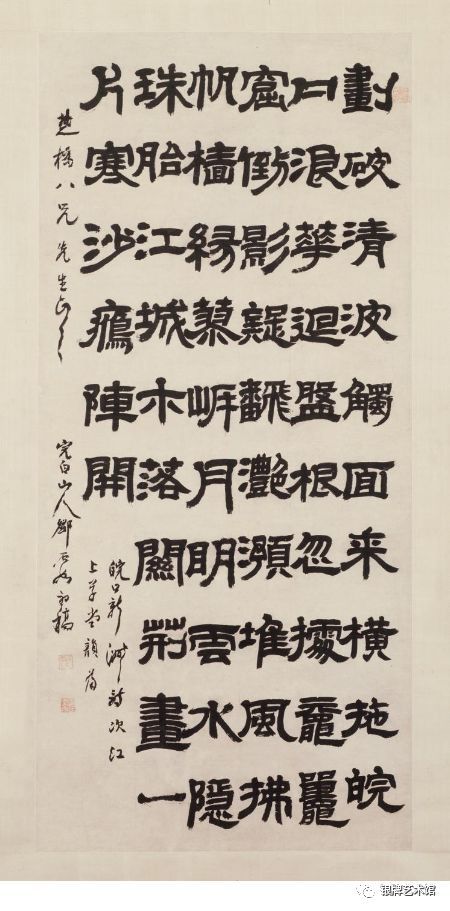 劃破清波觸面来橫拖皖
口浪華迴盤根忽據黿鼉
窟倒影疑翻灩澦堆風拂
帆檣緣岸月明雲水隱
珠胎江城木落關荊畫一
片寒沙鴈陣開
皖口新洲詩次江
上草堂韻為
楚橋八兄先生正之
完白山人鄧石如初稿
银牌艺术馆